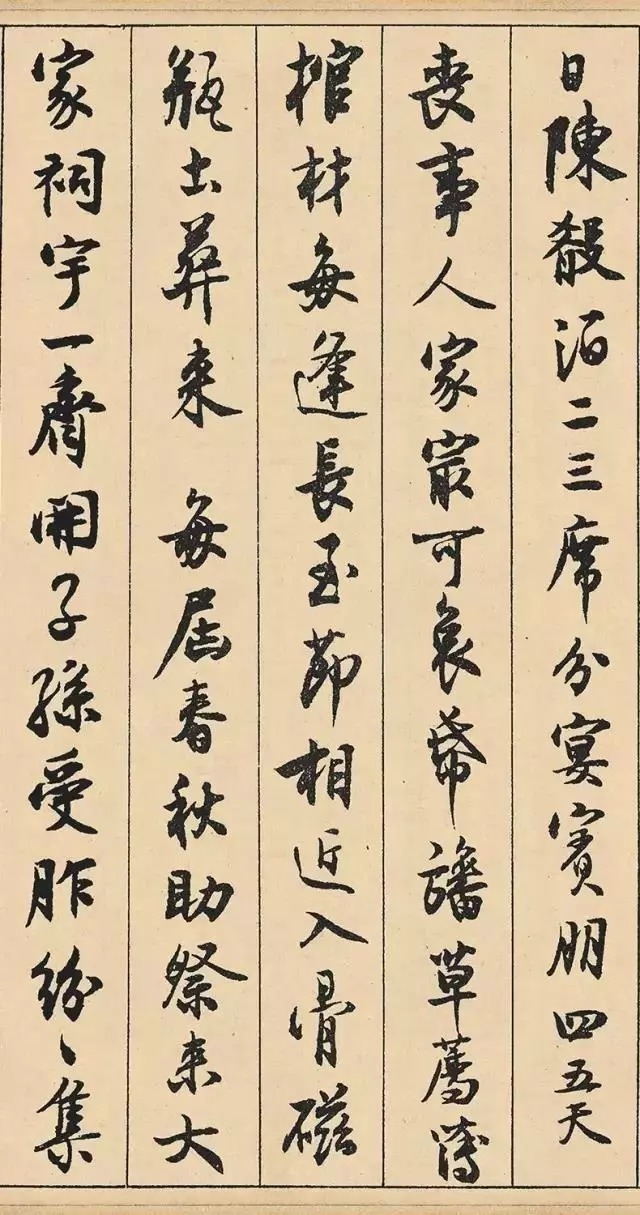 日陳殽泊二三席分宴賓朋四五天
喪事人家最可哀帋旛草薦薄
棺材每逢長至節相近入骨磁
瓶出葬來 每屆春秋助祭來大
家祠宇一齊開子孫受胙紛〻集